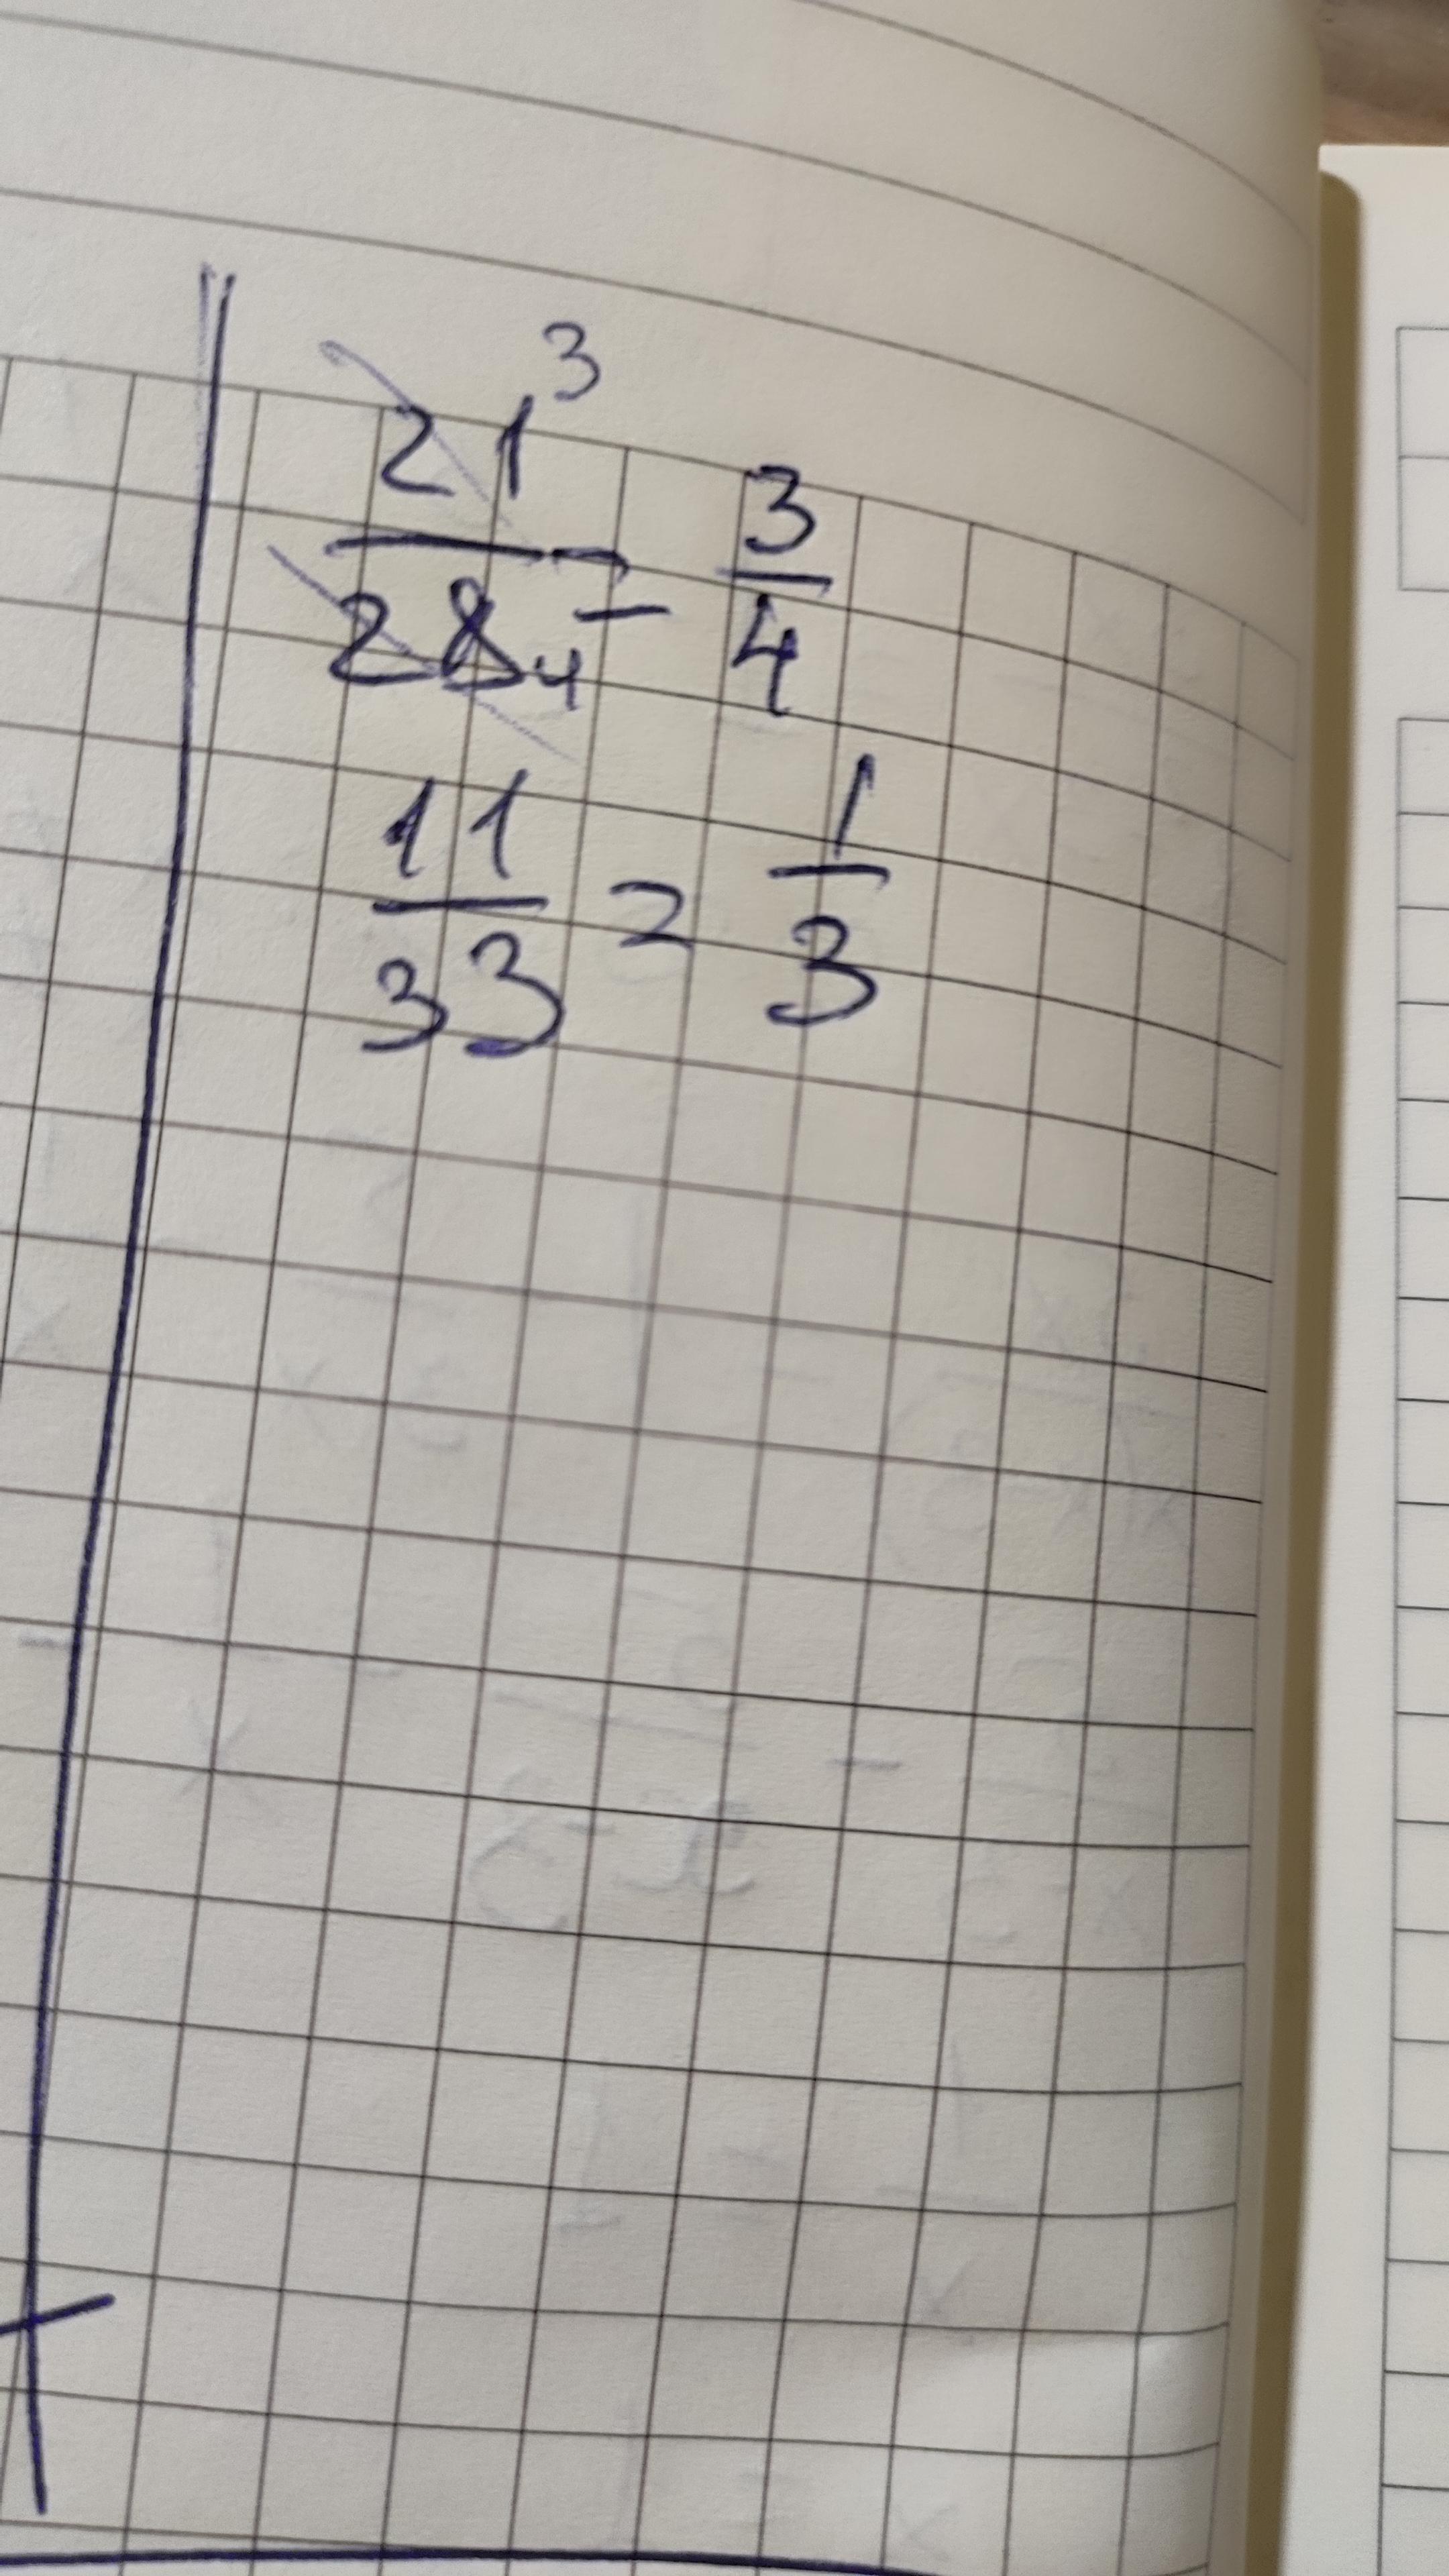 21 3 / 28 4 = 3/4
11/33 = 1/3